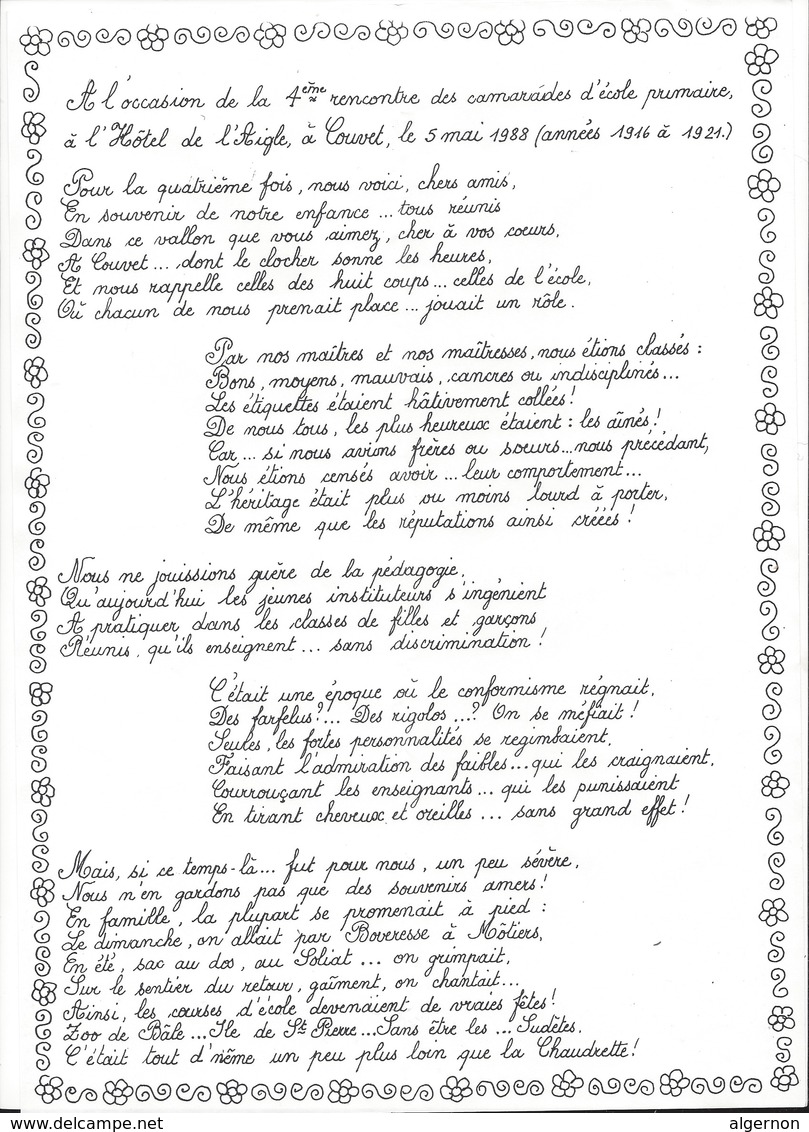 A l'occasion de la 4ème rencontre des camarades d'école primaire,
à l'Hôtel de l'Aigle, à Couvet, le 5 mai 1988 (années 1916 à 1921.)
Pour la quatrième fois, nous voici, chers amis,
En souvenir de notre enfance ... tous réunis
Dans ce vallon que vous aimez, cher à vos coeurs,
A Couvet ... dont le clocher sonne les heures,
Et nous rappelle celles des huit coups ... celles de l'école,
Où chacun de nous prenait place ... jouait un rôle.
Par nos maîtres et nos maîtresses, nous étions classés :
Bons, moyens, mauvais, cancres ou indisciplinés ...
Les étiquettes étaient hâtivement collées!
De nous tous, les plus heureux étaient : les aînés!
Car ... si nous avions frères ou soeurs ... nous précédant,
Nous étions censés avoir ... leur comportement ...
L'héritage était plus ou moins lourd à porter,
De même que les réputations ainsi créées!
Nous ne jouissions guère de la pédagogie,
Qu'aujourd'hui les jeunes instituteurs s'ingénient
A pratiquer dans les classes de filles et garçons
Réunis, qu'ils enseignent ... sans discrimination!
C'était une époque où le conformisme régnait,
Des farfelus?... Des rigolos ...? On se méfiait!
Seules, les fortes personnalités se regimbaient,
Faisant l'admiration des faibles ... qui les craignaient,
Courrouçant les enseignants ... qui les punissaient
En tirant cheveux et oreilles ... sans grand effet!
Mais, si ce temps-là ... fut pour nous, un peu sévère,
Nous n'en gardons pas que des souvenirs amers!
En famille, la plupart se promenait à pied :
Le dimanche, on allait par Boveresse à Môtiers,
En été, sac au dos, au Soliat ... on grimpait,
Sur le sentier du retour, gaîment, on chantait ...
Ainsi, les courses d'école devenaient de vraies fêtes!
Zoo de Bâle ... Ile de St Pierre ... Sans être les ... Sudètes,
C'était tout d'même un peu plus loin que la Chaudrette!
www.delcampe.net
algernon